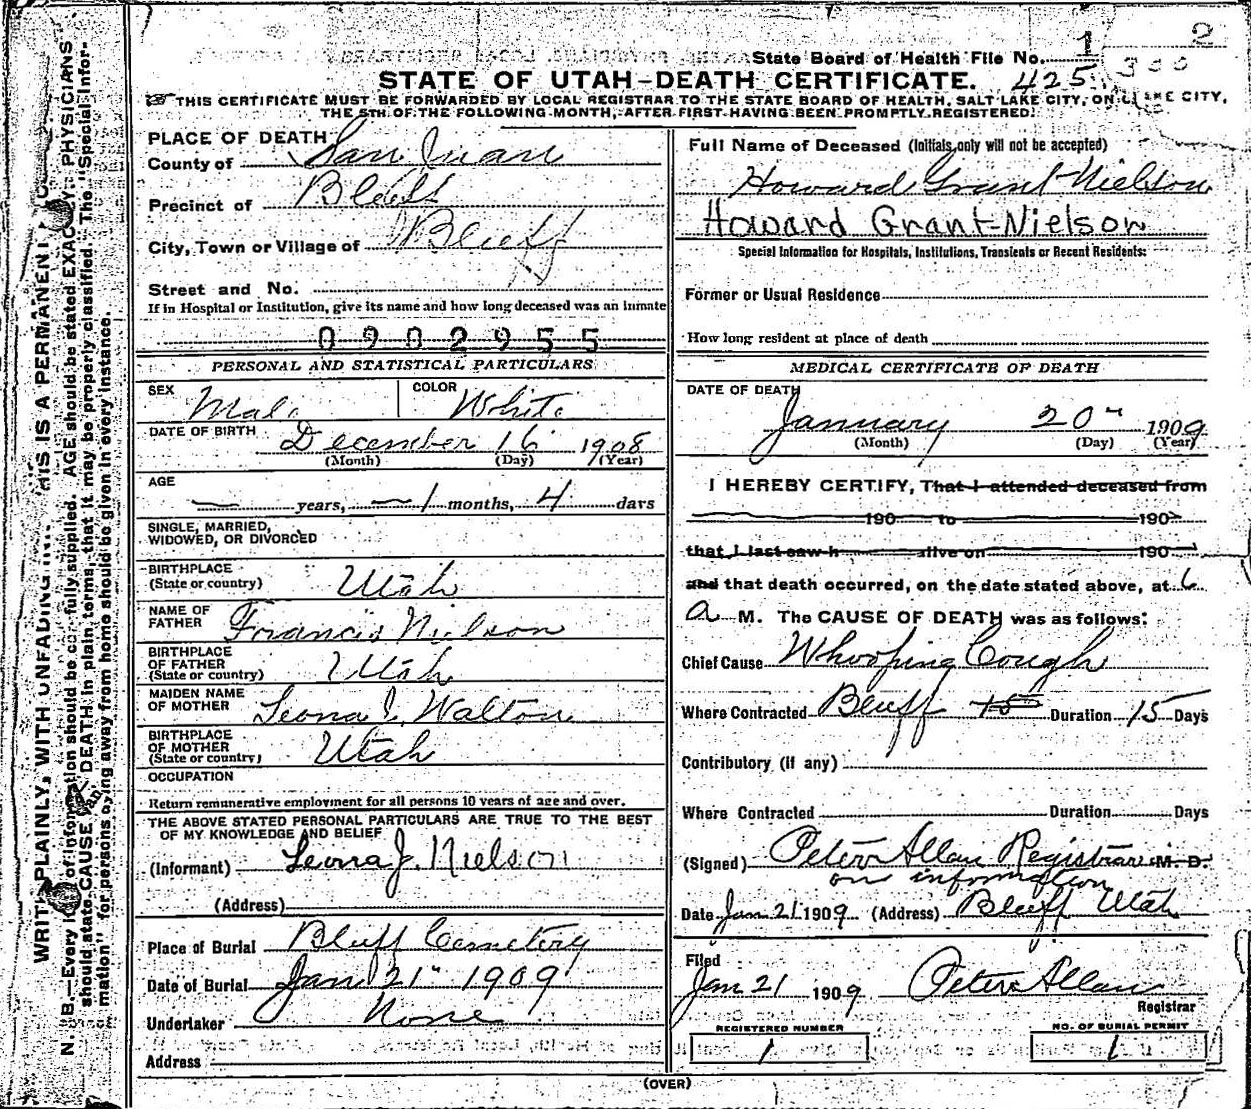 State Board of Health File No. 1 2
STATE OF UTAH-DEATH CERTIFICATE. 425 300
THIS CERTIFICATE MUST BE FORWARDED BY LOCAL REGISTRAR TO THE STATE BOARD OF HEALTH, SALT LAKE CITY, ON
THE 5TH OF THE FOLLOWING MONTH, AFTER FIRST HAVING BEEN PROMPTLY REGISTERED.
PLACE OF DEATH
County of San Juan
Precinct of Bluff
City, Town or Village of Bluff
Street and No.
If in Hospital or Institution, give its name and how long deceased was an inmate
0902955
Full Name of Deceased (Initials only will not be accepted)
Howard Grant Nielson
Howard Grant Nielson
Special Information for Hospitals, Institutions, Transients or Recent Residents:
Former or Usual Residence
How long resident at place of death
PERSONAL AND STATISTICAL PARTICULARS
SEX Male COLOR White
DATE OF BIRTH December 16 1908
(Month) (Day) (Year)
AGE
— years, — 1 months, 4 days
SINGLE, MARRIED,
WIDOWED, OR DIVORCED
BIRTHPLACE
(State or country) Utah
NAME OF
FATHER Francis Nielson
BIRTHPLACE
OF FATHER
(State or country) Utah
MAIDEN NAME
OF MOTHER Leona J. Walton
BIRTHPLACE
OF MOTHER
(State or country) Utah
OCCUPATION
Return remunerative employment for all persons 10 years of age and over.
THE ABOVE STATED PERSONAL PARTICULARS ARE TRUE TO THE BEST
OF MY KNOWLEDGE AND BELIEF
(Informant) Leona J. Nielson
(Address)
Place of Burial Bluff Cemetery
Date of Burial Jan 21" 1909
Undertaker None
Address
MEDICAL CERTIFICATE OF DEATH
DATE OF DEATH
January 20" 1909
(Month) (Day) (Year)
I HEREBY CERTIFY, That I attended deceased from
190 to 190
that I last saw h alive on 190
and that death occurred, on the date stated above, at 6
A M. The CAUSE OF DEATH was as follows:
Chief Cause Whooping Cough
Where Contracted Bluff 15 Duration 15 Days
Contributory (if any)
Where Contracted Duration Days
(Signed) Peter Allan Registrar M. D.
on information
Date Jan 21 1909 (Address) Bluff Utah
Filed
Jan 21 1909 Peter Allan
Registrar
REGISTERED NUMBER
1
NO. OF BURIAL PERMIT
1
(OVER)
WRITE PLAINLY, WITH UNFADING THIS IS A PERMANENT
N. B.—Every of information should be fully supplied. AGE should be stated EXACTLY. PHYSICIANS
should state CAUSE DEATH in plain terms, that it may be properly classified. The "Special Infor-
mation" for persons dying away from home should be given in every instance.